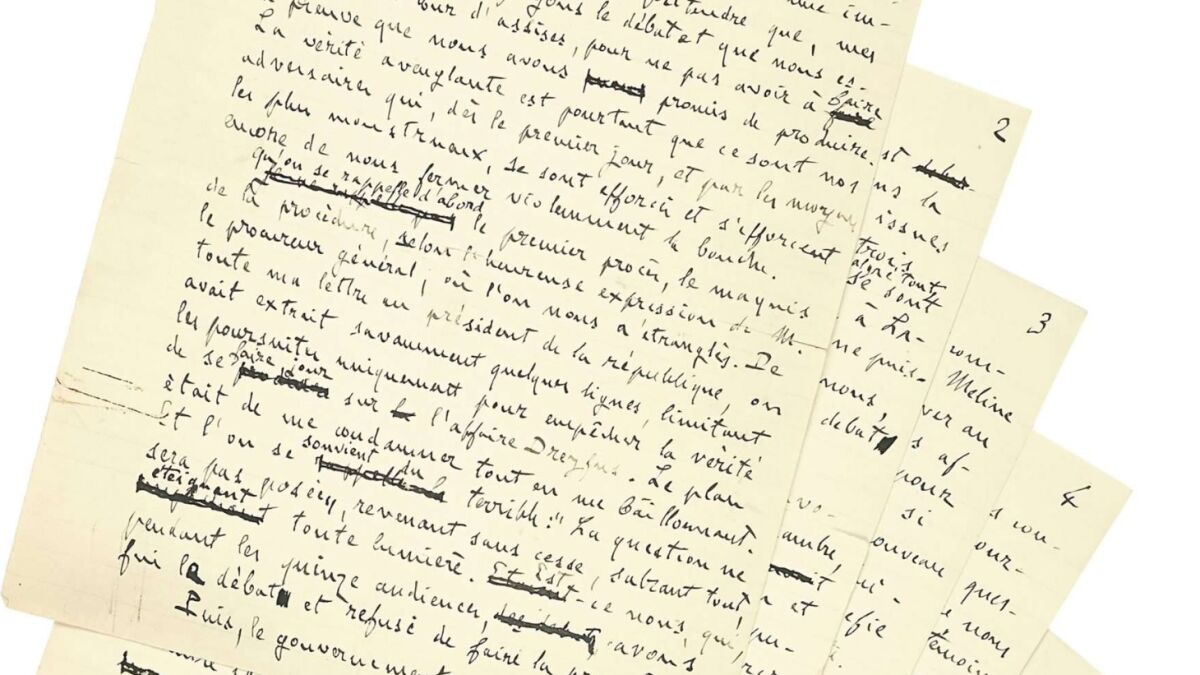 im-
prétendre que, mes
le débat et que nous es-
cour d'assises, pour ne pas avoir à faire
preuve que nous avons promis de produire.
La vérité aveuglante est pourtant que ce sont nos
adversaires qui, dès le premier jour, et par les moyens
les plus monstrueux, se sont efforcés et s'efforcent
encore de nous fermer violemment la bouche.
qu'on se rappelle d'abord le premier procès, le maquis
de la procédure, selon l'heureuse expression de M.
le procureur général, où l'on nous a étranglés. De
toute ma lettre au président de la république, on
avait extrait savamment quelques lignes, limitant
les poursuites uniquement pour empêcher la vérité
de se faire jour sur l'affaire Dreyfus. Le plan
était de me condamner tout en me bâillonnant.
Et l'on se souvient du terrible: "La question ne
sera pas posée", revenant sans cesse, tout,
éteignant toute lumière. Est-ce nous, qui,
pendant les quinze audiences, avons
fui le débat et refusé de faire la
Puis, le gouvernement
2
st
ns la
issues
trois
tout,
se sont
à La-
ne puis-
nous,
débat
vo-
et
3
com-
Méline
ver au
s af-
pour
si
ouveau
efie
4
s cou-
our-
ques-
nous
témoins